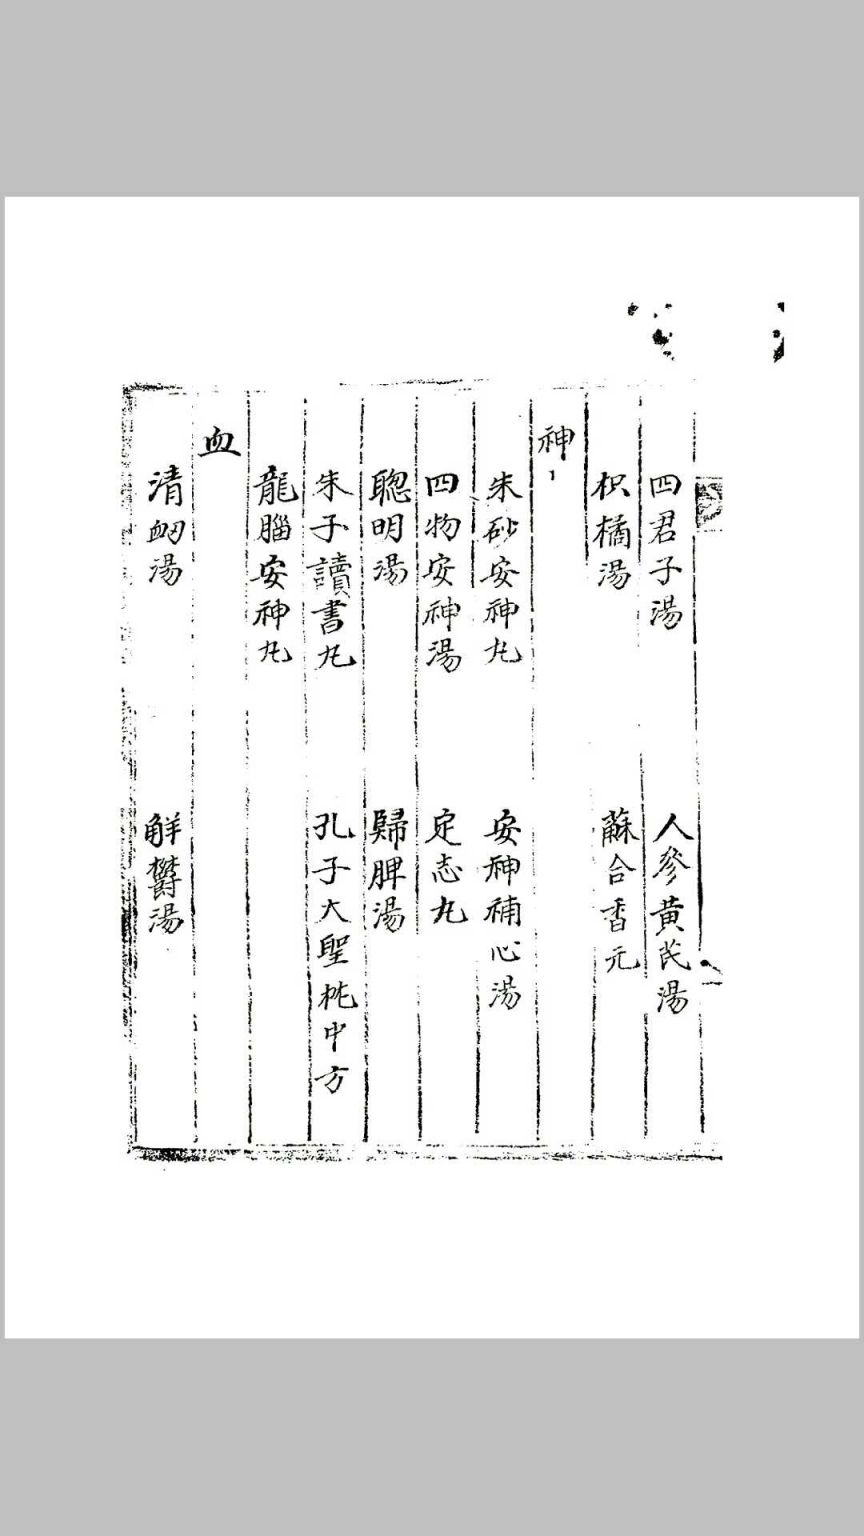 四君子湯 人參黄芪湯
枳橘湯 蘇合香元
神
朱砂安神丸 安神補心湯
四物安神湯 定志丸
聰明湯 歸脾湯
朱子讀書丸 孔子大聖枕中方
龍腦安神丸
血
清衂湯 解鬱湯